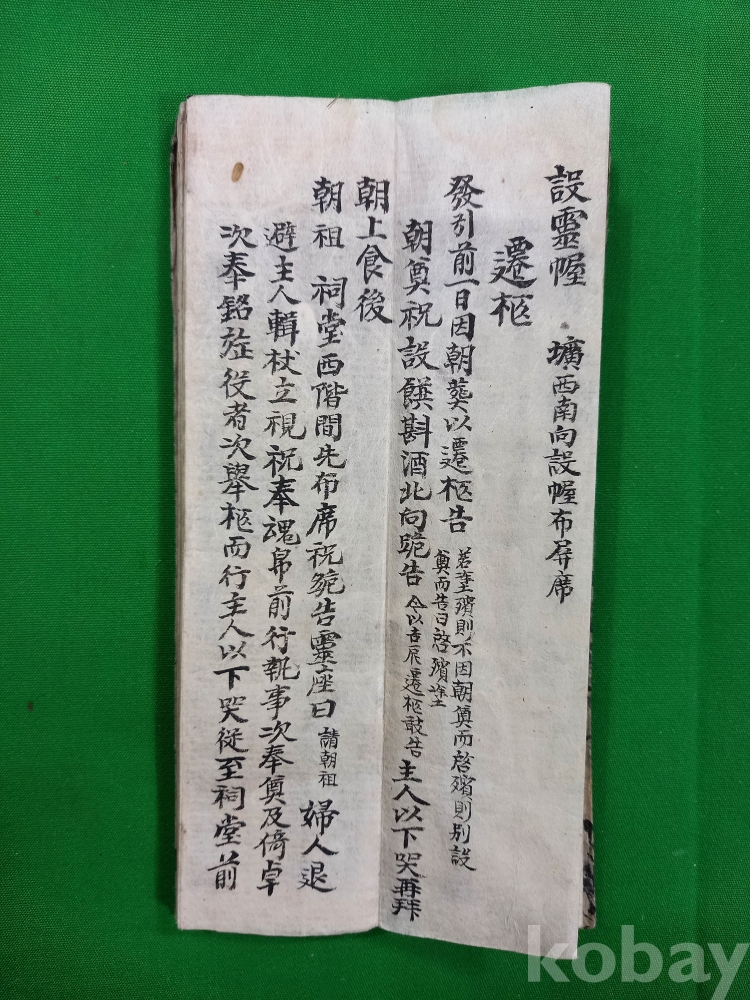 設靈幄 壙西南向設幄布屛席
遷柩
發引前一日因朝奠以遷柩告 若塗殯則不因朝奠而啓殯則別設奠而告曰啓殯塗
朝奠祝設饌斟酒北向跪告 今以吉辰遷柩敢告 主人以下哭再拜
朝上食後
朝祖 祠堂西階間先布席祝跪告靈座曰 請朝祖 婦人退
避主人輯杖立視祝奉魂帛前行執事次奉奠及倚卓
次奉銘旌役者次擧柩而行主人以下哭從至祠堂前
kobay